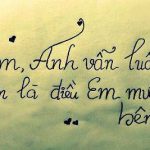 m, Anh vẫn luô
n là điều Em mu
bên